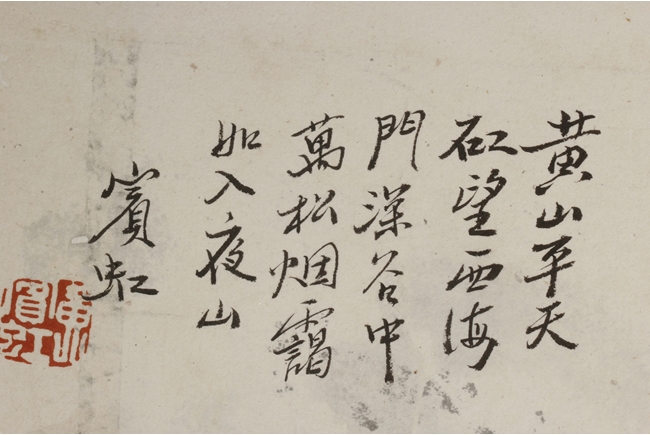 黄山平天
矼望西海
門深谷中
萬松烟靄
如入夜山
賓虹